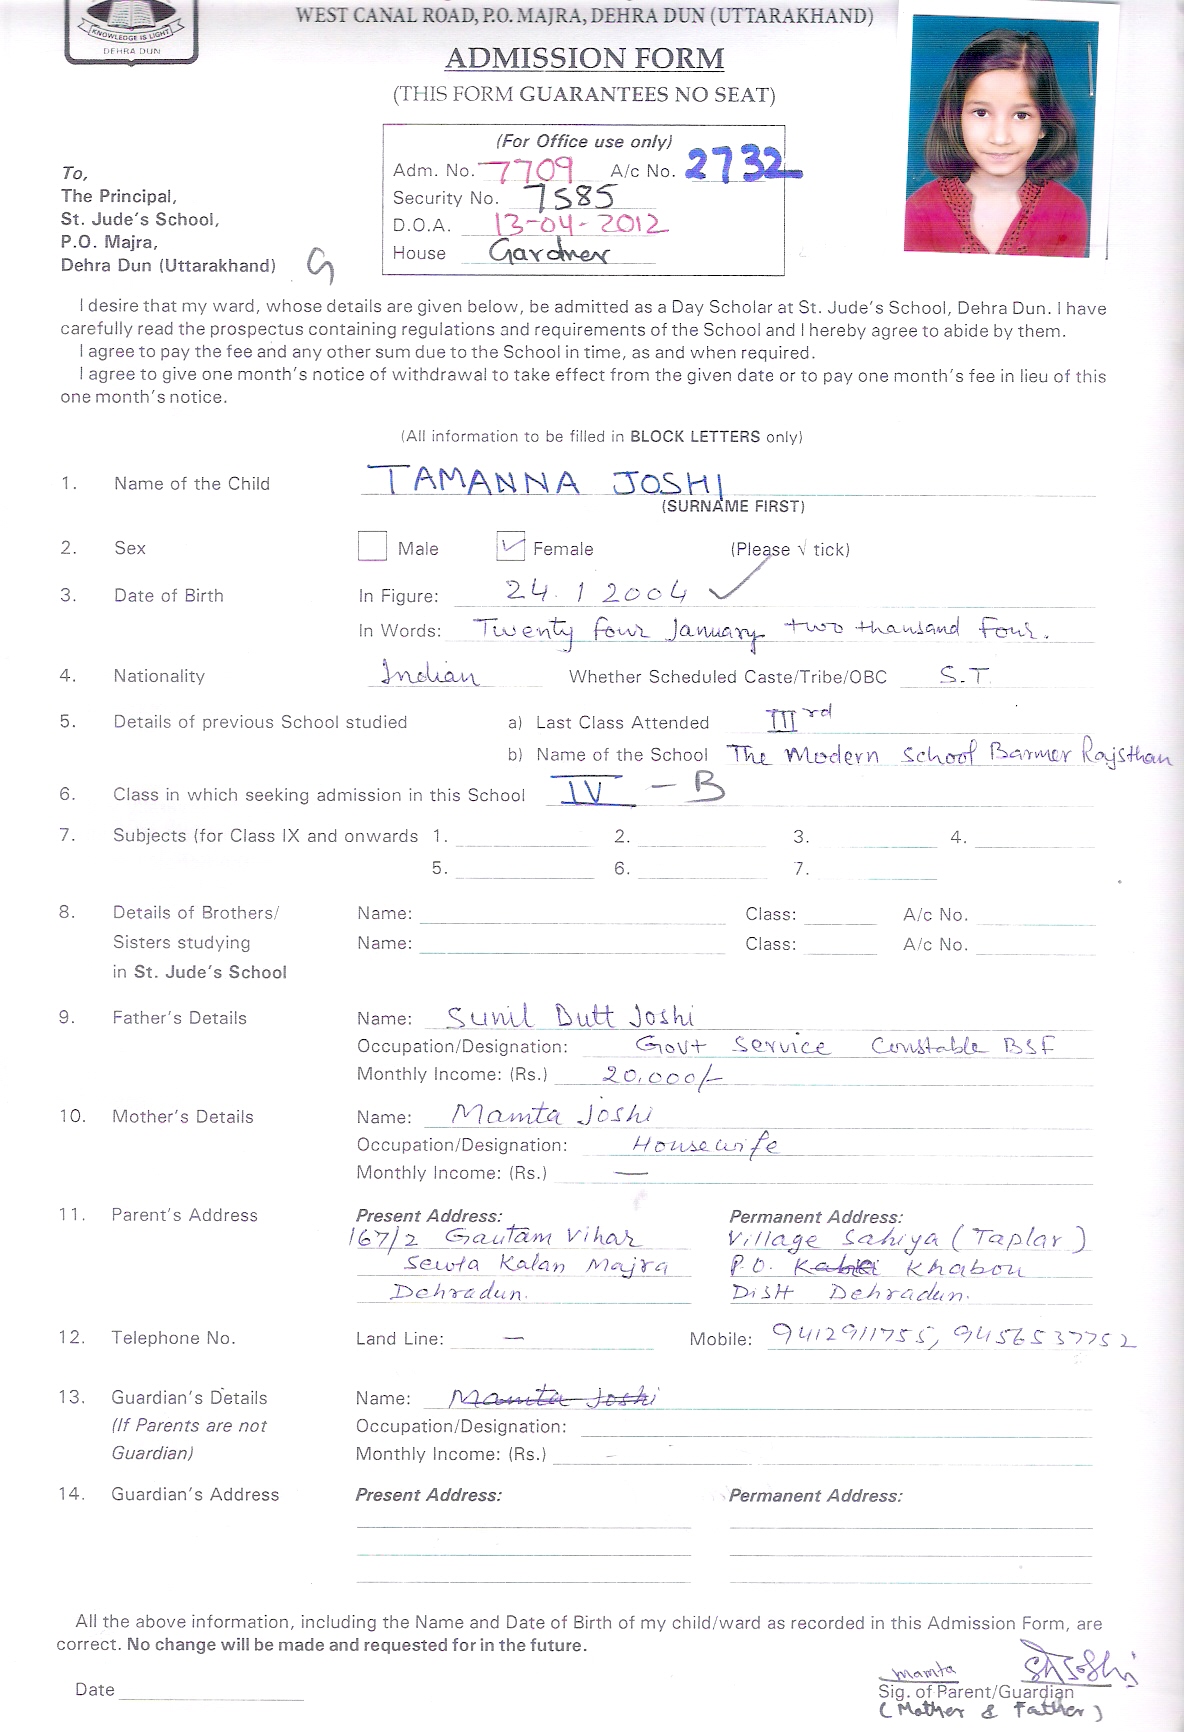 KNOWLEDGE IS LIGHT
DEHRA DUN
WEST CANAL ROAD, P.O. MAJRA, DEHRA DUN (UTTARAKHAND)
ADMISSION FORM
(THIS FORM GUARANTEES NO SEAT)
(For Office use only)
Adm. No. 7709 A/c No. 2732
Security No. 7585
D.O.A. 13-04-2012
House Gardner
To,
The Principal,
St. Jude's School,
P.O. Majra,
Dehra Dun (Uttarakhand) G
I desire that my ward, whose details are given below, be admitted as a Day Scholar at St. Jude's School, Dehra Dun. I have
carefully read the prospectus containing regulations and requirements of the School and I hereby agree to abide by them.
I agree to pay the fee and any other sum due to the School in time, as and when required.
I agree to give one month's notice of withdrawal to take effect from the given date or to pay one month's fee in lieu of this
one month's notice.
(All information to be filled in BLOCK LETTERS only)
1. Name of the Child TAMANNA JOSHI
(SURNAME FIRST)
2. Sex Male ✓ Female (Please √ tick)
3. Date of Birth In Figure: 24.1 2004 ✓
In Words: Twenty four January two thausand Four.
4. Nationality Indian Whether Scheduled Caste/Tribe/OBC S.T
5. Details of previous School studied a) Last Class Attended III rd
b) Name of the School The Modern School Barmer Rajsthan
6. Class in which seeking admission in this School IV - B
7. Subjects (for Class IX and onwards 1. 2. 3. 4.
5. 6. 7.
8. Details of Brothers/ Name: Class: A/c No.
Sisters studying Name: Class: A/c No.
in St. Jude's School
9. Father's Details Name: Sunil Dutt Joshi
Occupation/Designation: Govt Service Constable BSF
Monthly Income: (Rs.) 20,000/-
10. Mother's Details Name: Mamta Joshi
Occupation/Designation: Housewife
Monthly Income: (Rs.) —
11. Parent's Address Present Address: Permanent Address:
167/2 Gautam Vihar Village Sahiya (Taplar)
Sewla Kalan Majra P.O. Khabou
Dehradun. Distt Dehradun.
12. Telephone No. Land Line: — Mobile: 9412911755, 9456537752
13. Guardian's Details Name: Mamta Joshi
(If Parents are not Occupation/Designation:
Guardian) Monthly Income: (Rs.) -
14. Guardian's Address Present Address: Permanent Address:
All the above information, including the Name and Date of Birth of my child/ward as recorded in this Admission Form, are
correct. No change will be made and requested for in the future.
Mamta SDJoshi
Date Sig. of Parent/Guardian
(Mother & Father)